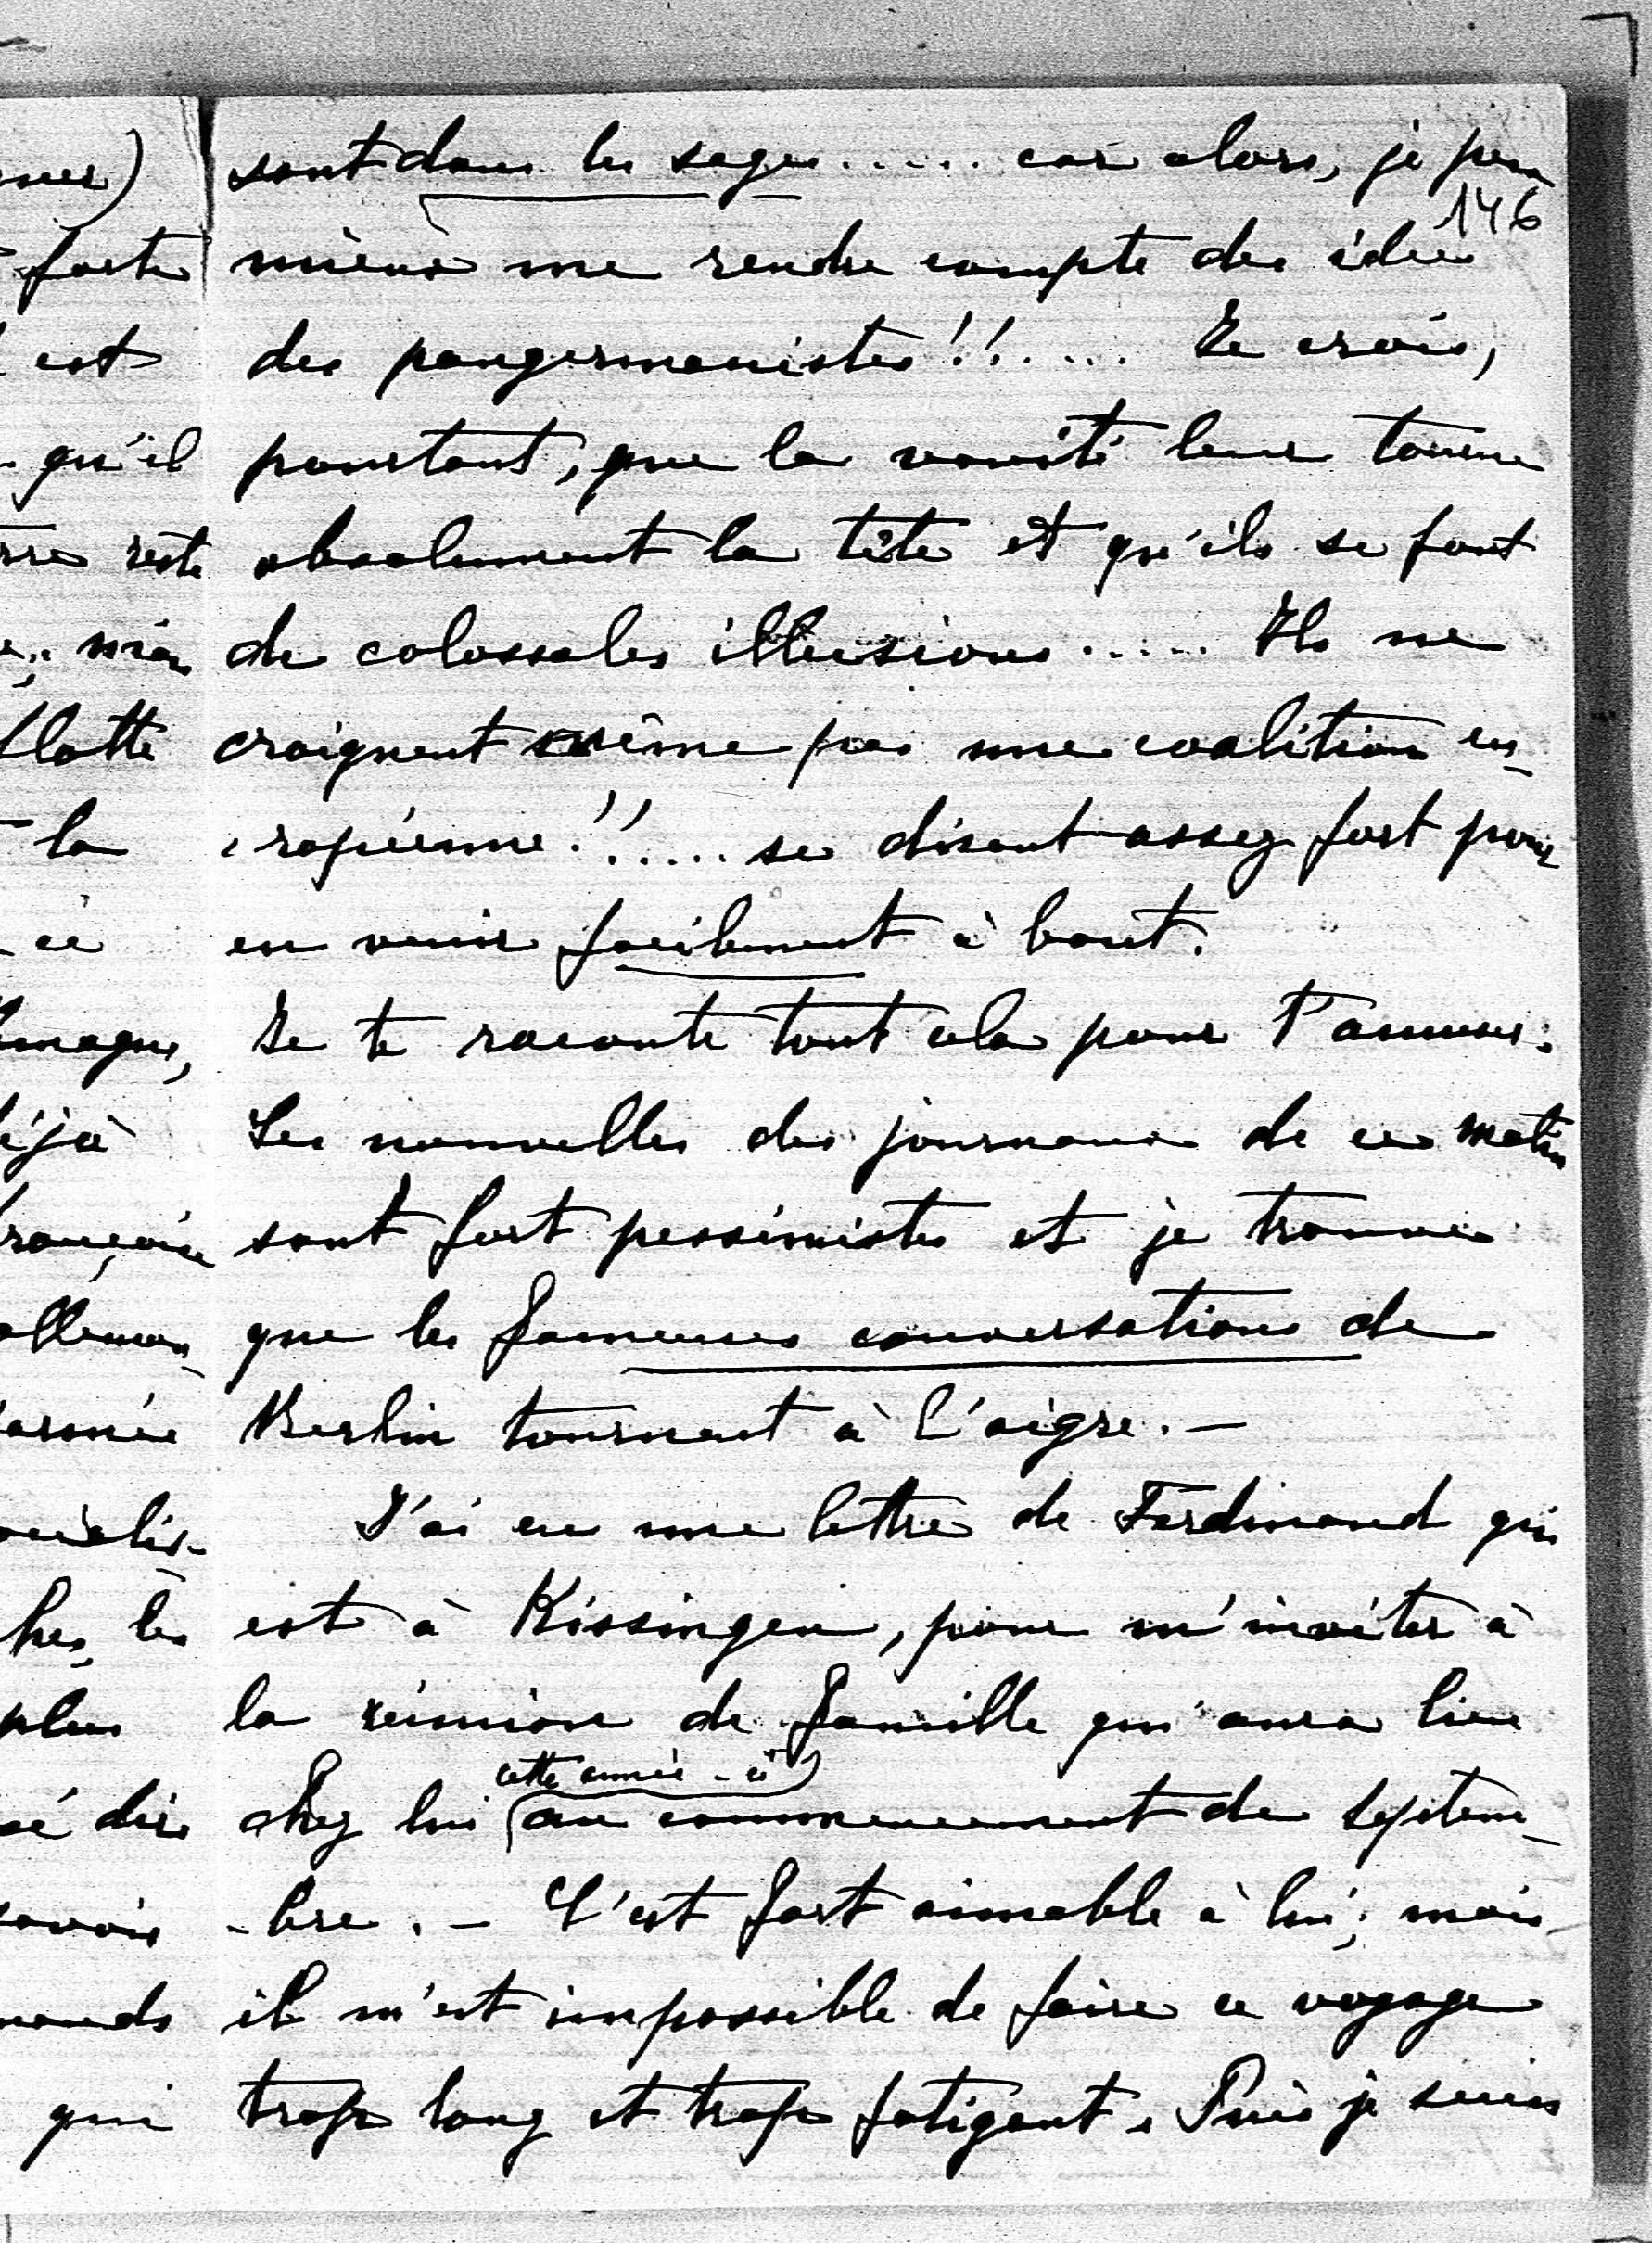 sont dans les sages ..... car alors, je peux
146
mieux me rendre compte des idées
des pangermanistes !!.... Je crois,
pourtant, que la vanité leur tourne
absolument la tête et qu'ils se font
de colossales illusions ..... Ils ne
craignent même pas une coalition eu-
ropéenne !!..... se disant assez fort pour
en venir facilement à bout.
Je te raconte tout cela pour t'amuser.
Les nouvelles des journaux de ce matin
sont fort pessimistes et je trouve
que les fameuses conversations de
Berlin tournent à l'aigre. —
J'ai eu une lettre de Ferdinand qui
est à Kissingen, pour m'inviter à
la réunion de famille qui aura lieu
cette année-ci
chez lui au commencement de Septem-
-bre. — C'est fort aimable à lui; mais
il m'est impossible de faire ce voyage
trop long et trop fatigant. Puis je suis
forte
est
qu'il
reste
flotte
la
ce
déjà
armée
les
plus
dire
savoir
qui